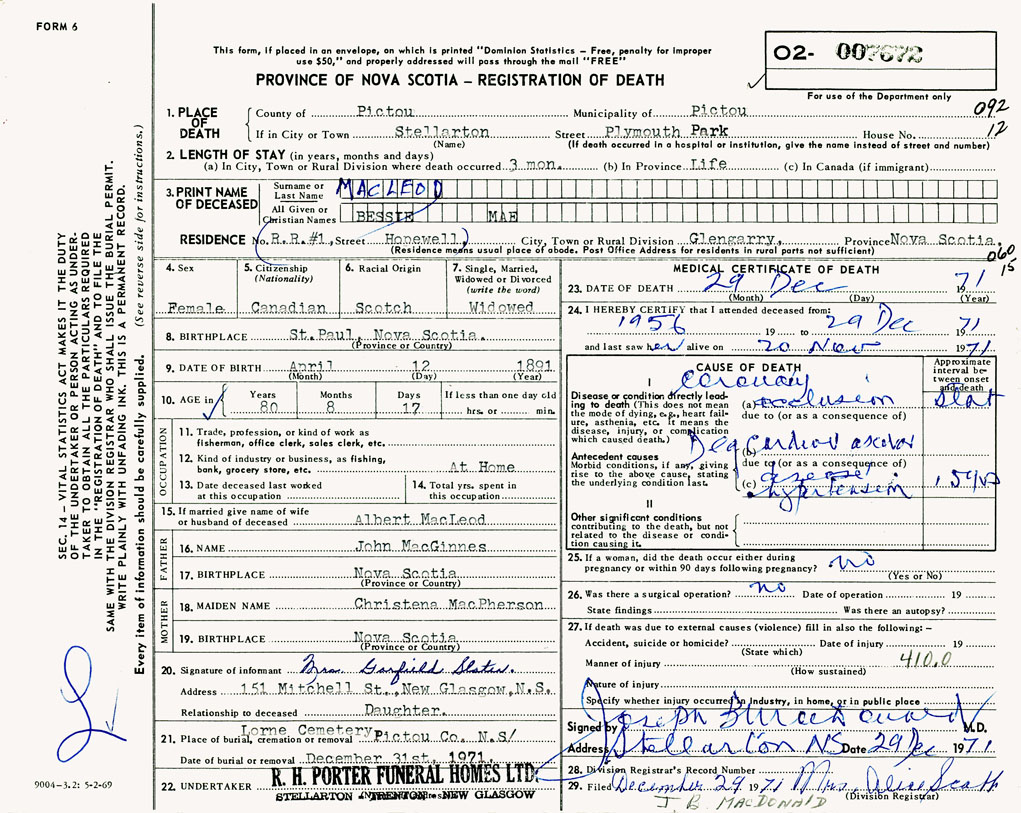 FORM 6
This form, if placed in an envelope, on which is printed "Dominion Statistics – Free, penalty for improper
use $50," and properly addressed will pass through the mail "FREE"
PROVINCE OF NOVA SCOTIA – REGISTRATION OF DEATH
O2- 007672
For use of the Department only
092
12
1. PLACE OF DEATH
County of Pictou Municipality of Pictou
If in City or Town Stellarton Street Plymouth Park House No.
(Name) (If death occurred in a hospital or institution, give the name instead of street and number)
2. LENGTH OF STAY (in years, months and days)
(a) In City, Town or Rural Division where death occurred 3 mon. (b) In Province Life (c) In Canada (if immigrant)
3. PRINT NAME OF DECEASED
Surname or Last Name MACLEOD
All Given or Christian Names BESSIE MAE
RESIDENCE No. R.R.#1, Street Hopewell) City, Town or Rural Division Glengarry, Province Nova Scotia.
(Residence means usual place of abode. Post Office Address for residents in rural parts not sufficient)
060
15
4. Sex
Female
5. Citizenship
(Nationality)
Canadian
6. Racial Origin
Scotch
7. Single, Married,
Widowed or Divorced
(write the word)
Widowed
8. BIRTHPLACE St.Paul, Nova Scotia.
(Province or Country)
9. DATE OF BIRTH April 12 1891
(Month) (Day) (Year)
10. AGE in
Years Months Days If less than one day old
80 8 17 hrs. or min.
OCCUPATION
11. Trade, profession, or kind of work as
fisherman, office clerk, sales clerk, etc.
12. Kind of industry or business, as fishing,
bank, grocery store, etc. At Home
13. Date deceased last worked
at this occupation
14. Total yrs. spent in
this occupation
15. If married give name of wife
or husband of deceased Albert MacLeod
FATHER
16. NAME John MacGinnes
17. BIRTHPLACE Nova Scotia
(Province or Country)
MOTHER
18. MAIDEN NAME Christena MacPherson
19. BIRTHPLACE Nova Scotia
(Province or Country)
20. Signature of informant Mrs. Garfield Slater.
Address 151 Mitchell St., New Glasgow, N.S.
Relationship to deceased Daughter.
Lorne Cemetery
21. Place of burial, cremation or removal Pictou Co. N.S/
Date of burial or removal December 31st, 1971.
22. UNDERTAKER R. H. PORTER FUNERAL HOMES LTD.
STELLARTON TRENTON NEW GLASGOW
MEDICAL CERTIFICATE OF DEATH
23. DATE OF DEATH 29 Dec 71
(Month) (Day) (Year)
24. I HEREBY CERTIFY that I attended deceased from:
1956 19 to 29 Dec 1971
and last saw her alive on 20 Nov 1971
CAUSE OF DEATH
Approximate interval between onset and death
I
Disease or condition directly leading to death (This does not mean the mode of dying, e.g., heart failure, asthenia, etc. It means the disease, injury, or complication which caused death.)
coronary
(a) occlusion stat
due to (or as a consequence of)
Antecedent causes
Morbid conditions, if any, giving rise to the above cause, stating the underlying condition last.
(b)
due to (or as a consequence of)
disease
(c) hypertension 15 yrs
II
Other significant conditions
contributing to the death, but not
related to the disease or condition causing it.
25. If a woman, did the death occur either during
pregnancy or within 90 days following pregnancy? no
(Yes or No)
26. Was there a surgical operation? no Date of operation 19
State findings Was there an autopsy?
27. If death was due to external causes (violence) fill in also the following: –
Accident, suicide or homicide? Date of injury 19
(State which)
Manner of injury 410.0
(How sustained)
Nature of injury
Specify whether injury occurred in Industry, in home, or in public place
Signed by Joseph M.D.
Address Stellarton NS Date 29 Dec 1971
28. Division Registrar's Record Number
29. Filed December 29 1971 Mrs. Alice Scott
(Division Registrar)
J. B. MACDONALD
SEC. 14 – VITAL STATISTICS ACT MAKES IT THE DUTY
OF THE UNDERTAKER OR PERSON ACTING AS UNDERTAKER TO OBTAIN ALL THE PARTICULARS REQUIRED
IN THE "REGISTRATION OF DEATH" AND TO FILE THE
SAME WITH THE DIVISION REGISTRAR WHO SHALL ISSUE THE BURIAL PERMIT.
WRITE PLAINLY WITH UNFADING INK. THIS IS A PERMANENT RECORD.
Every item of information should be carefully supplied. (See reverse side for instructions.)
9004–3.2: 5-2-69